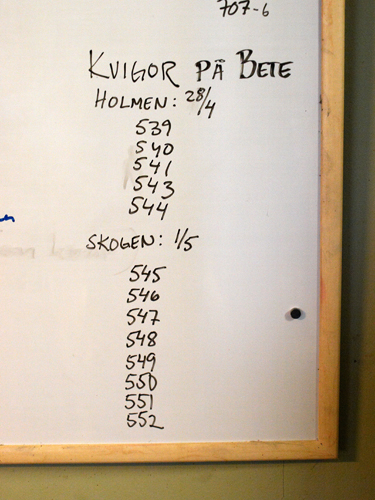 707-6
KVIGOR PÅ BETE
HOLMEN: 28/4
539
540
541
543
544
SKOGEN: 1/5
545
546
547
548
549
550
551
552